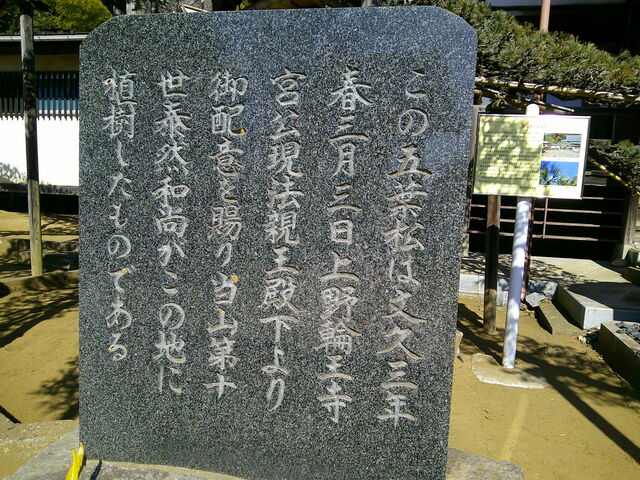 この五葉松は文久三年
春三月三日上野輪王寺
宮公現法親王殿下より
御配意を賜り当山第十
世泰然和尚がこの地に
植樹したものである